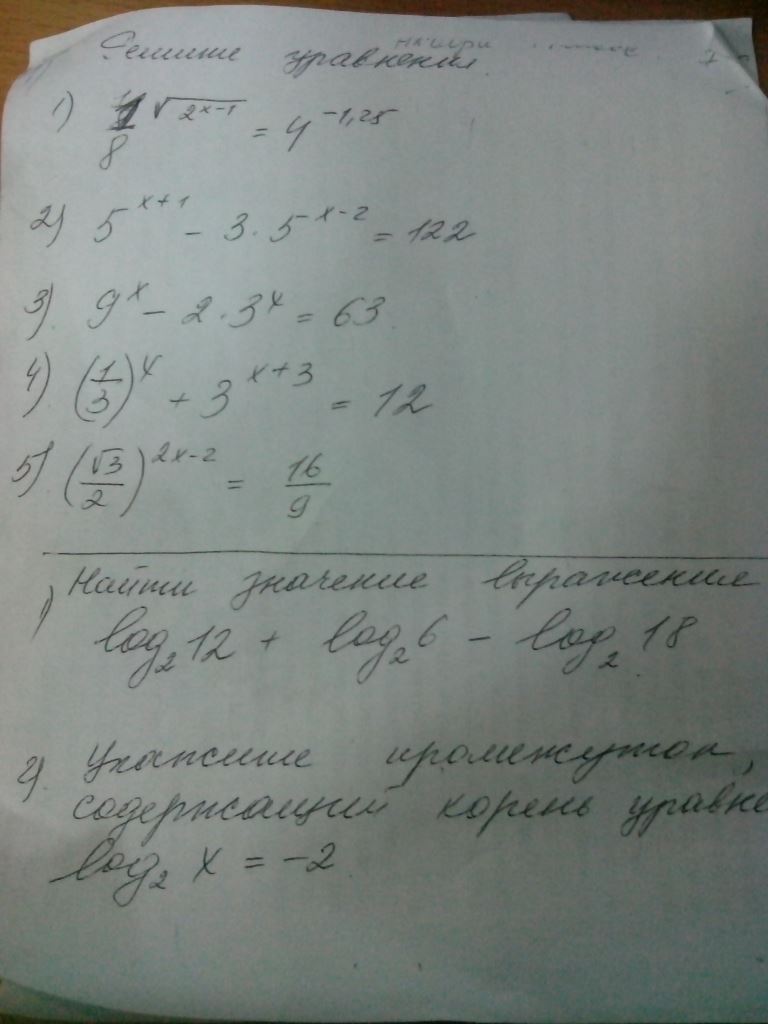 Решите уравнения
1) 1/8 √(2x-1) = 4^(-1,25)
2) 5^(x+1) - 3 · 5^(x-2) = 122
3) 9^x - 2 · 3^x = 63
4) (1/3)^x + 3^(x+3) = 12
5) (√3/2)^(2x-2) = 16/9
1) Найти значение выражения
log₂ 12 + log₂ 6 - log₂ 18
2) Укажите промежуток,
содержащий корень уравне
log₂ x = -2